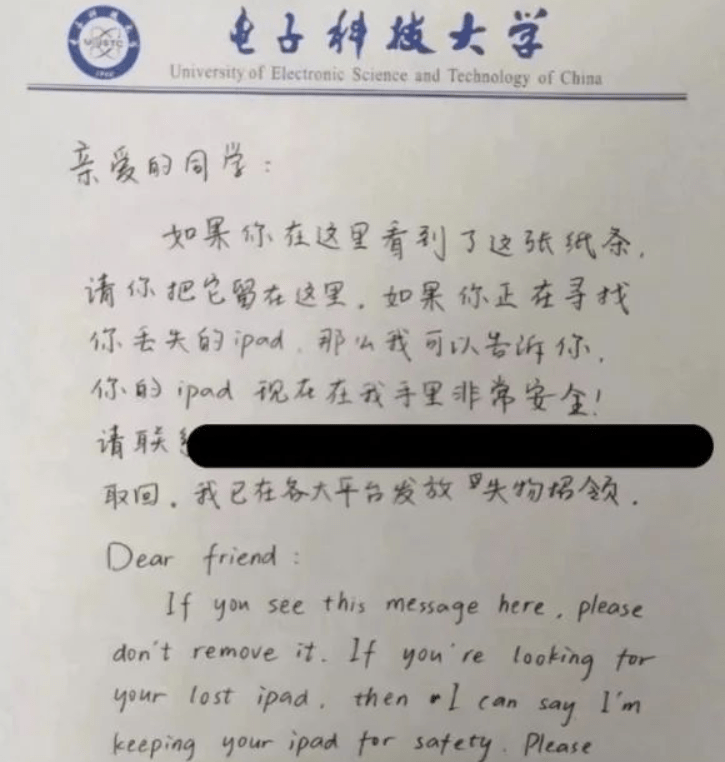 电子科技大学
University of Electronic Science and Technology of China
亲爱的同学：
如果你在这里看到了这张纸条，
请你把它留在这里。如果你正在寻找
你丢失的ipad，那么我可以告诉你，
你的ipad现在在我手里非常安全！
请联系
取回。我已在各大平台发放失物招领。
Dear friend：
If you see this message here, please
don't remove it. If you're looking for
your lost ipad, then I can say I'm
keeping your ipad for safety. Please